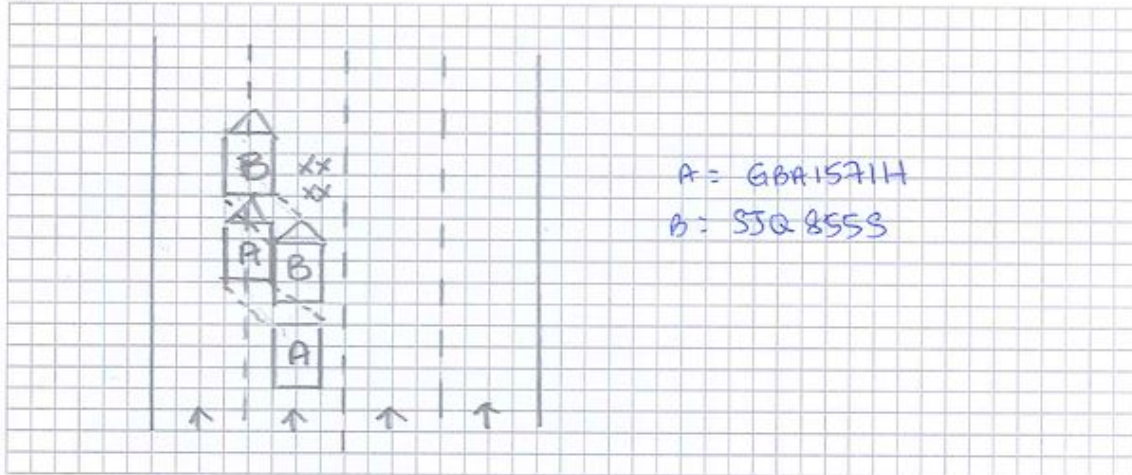 B xx
xx
A B
A
A = GBA1571H
B: SJQ 855S